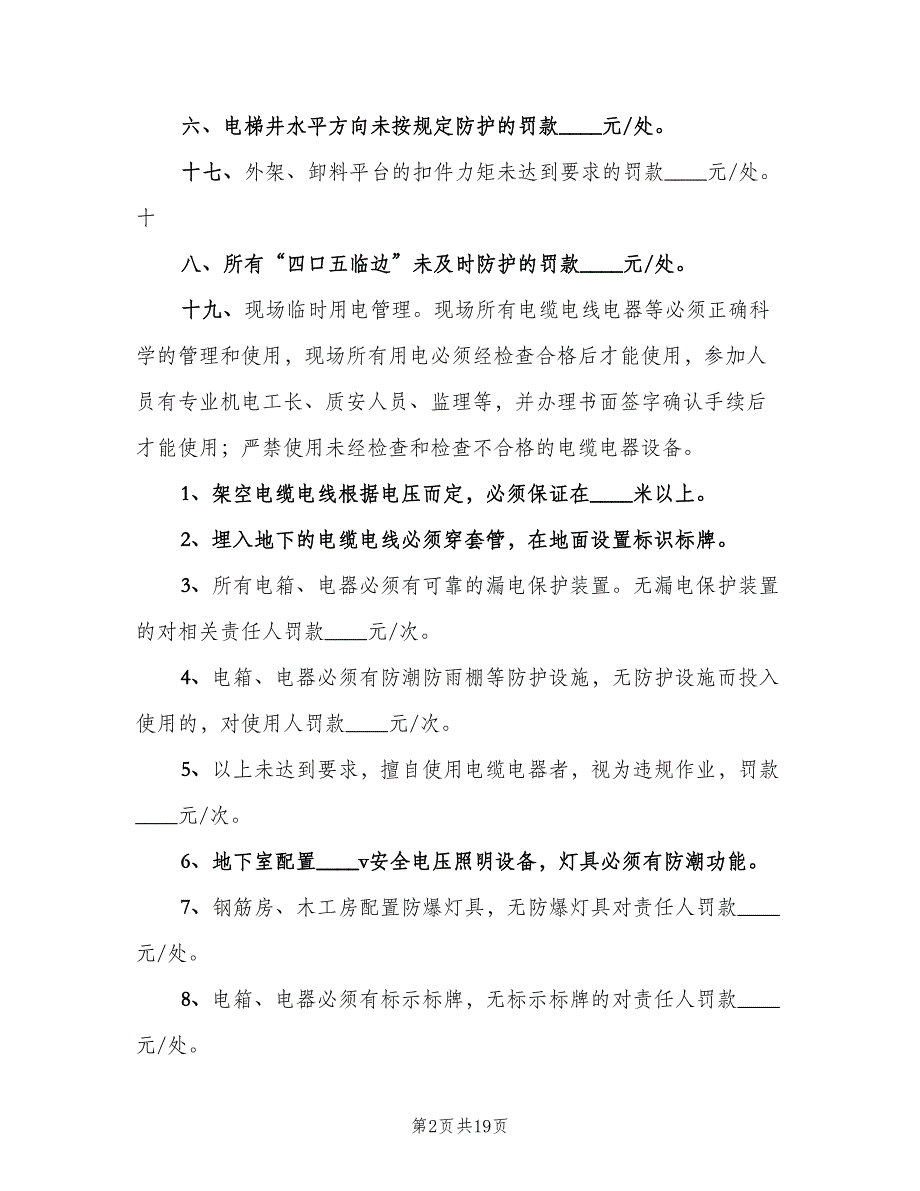 六、电梯井水平方向未按规定防护的罚款____元/处。
十七、外架、卸料平台的扣件力矩未达到要求的罚款____元/处。
十
八、所有“四口五临边”未及时防护的罚款____元/处。
十九、现场临时用电管理。现场所有电缆电线电器等必须正确科
学的管理和使用，现场所有用电必须经检查合格后才能使用，参加人
员有专业机电工长、质安人员、监理等，并办理书面签字确认手续后
才能使用；严禁使用未经检查和检查不合格的电缆电器设备。
1、架空电缆电线根据电压而定，必须保证在____米以上。
2、埋入地下的电缆电线必须穿套管，在地面设置标识标牌。
3、所有电箱、电器必须有可靠的漏电保护装置。无漏电保护装置
的对相关责任人罚款____元/次。
4、电箱、电器必须有防潮防雨棚等防护设施，无防护设施而投入
使用的，对使用人罚款____元/次。
5、以上未达到要求，擅自使用电缆电器者，视为违规作业，罚款
____元/次。
6、地下室配置____v安全电压照明设备，灯具必须有防潮功能。
7、钢筋房、木工房配置防爆灯具，无防爆灯具对责任人罚款____
元/处。
8、电箱、电器必须有标示标牌，无标示标牌的对责任人罚款____
元/处。
第2页共19页